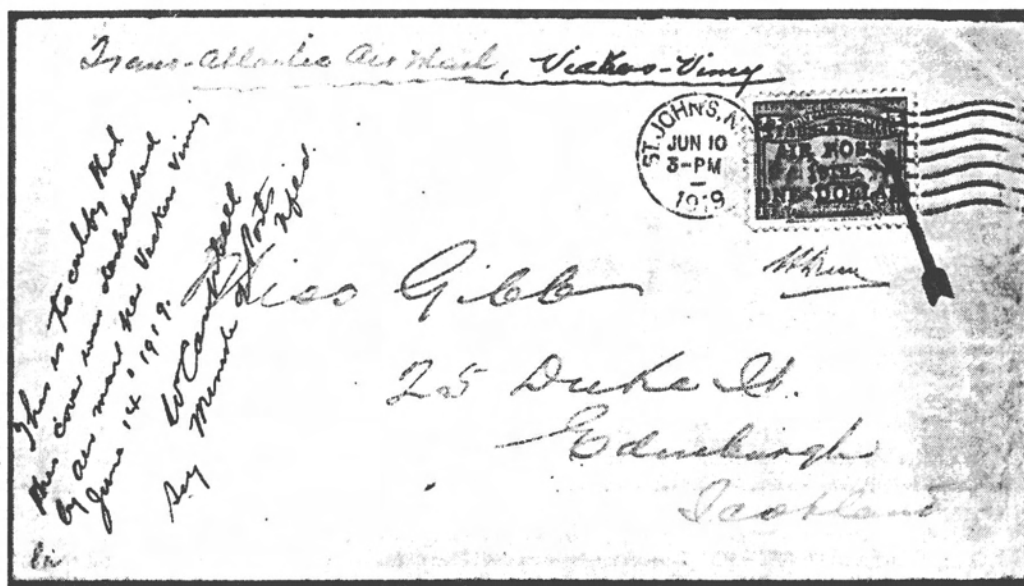 Trans-Atlantic Air Mail, Vickers-Vimy
ST. JOHN'S, N
JUN 10
3-PM
1919
Trans-Atlantic
AIR POST
1919
ONE DOLLAR
This is to certify that
this cover was
by air mail per Vickers Vimy
June 14" 1919.
W Campbell
Secy
Nfld.
Miss Gibb
25 Duke St.
Edinburgh
Scotland